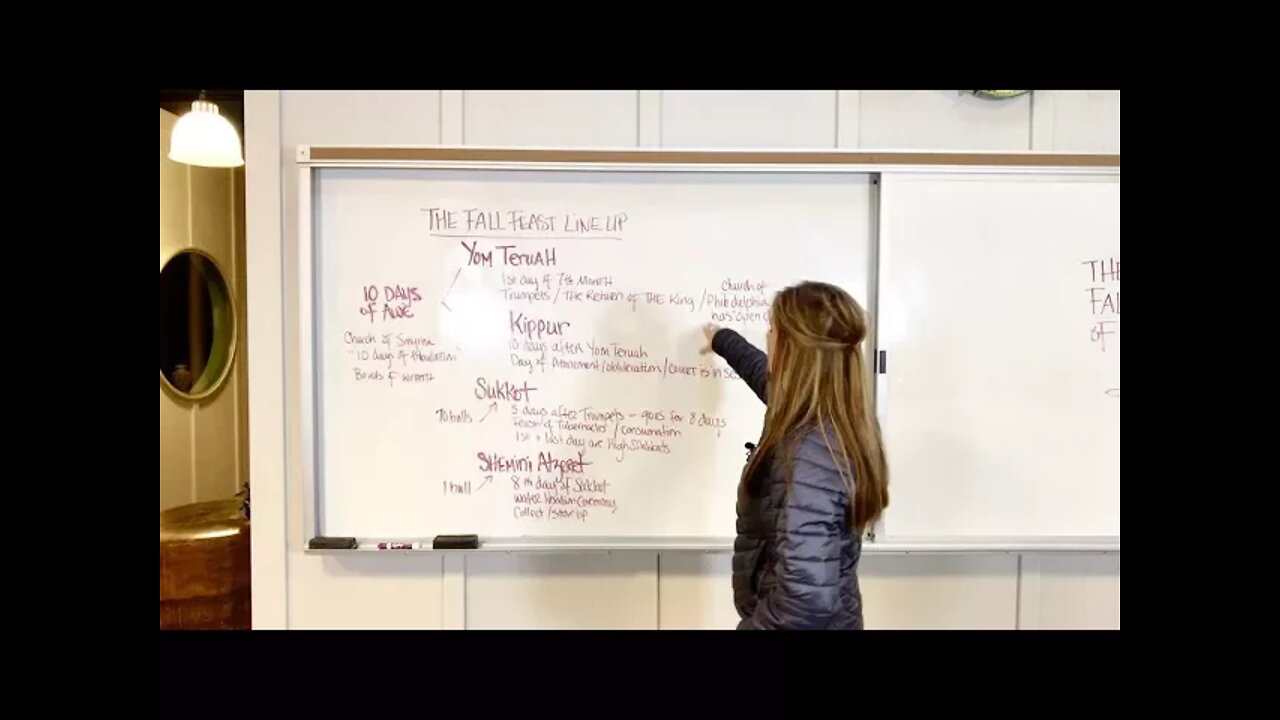 THE FALL FEAST LINE UP
YOM TERUAH
1st day of 7th Month
Trumpets / The Return of THE King / Philadelphia
church of
has open
10 DAYS
OF AWE
Church of Smyrna
"10 days of tribulation"
Bowls of wrath
Kippur
10 days after Yom Teruah
Day of Atonement/obliteration/court is in
Sukkot
70 bulls
5 days after Trumpets - goes for 8 days
Feast of Tabernacles / consumation
1st + last day are High Sabbaths
SHEMINI Atzeret
1 bull
8th day of Sukkot
Water libation Ceremony
Collect / Stor up
THE
FAL
of